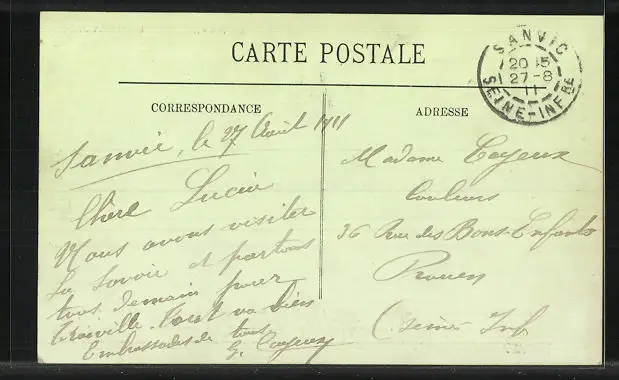 CARTE POSTALE
SANVIC
20 15
27-8
11
SEINE-INF RE
CORRESPONDANCE
ADRESSE
Sanvic, le 27 Août 1911
Chère Lucie
Nous avons visiter
La Savoie et partons
tous demain pour
Trouville. Tout va bien
Embrassades de tous
G. Cayeux
Madame Cayeux
Couleurs
36 Rue des Bons-Enfants
Rouen
(Seine Inf